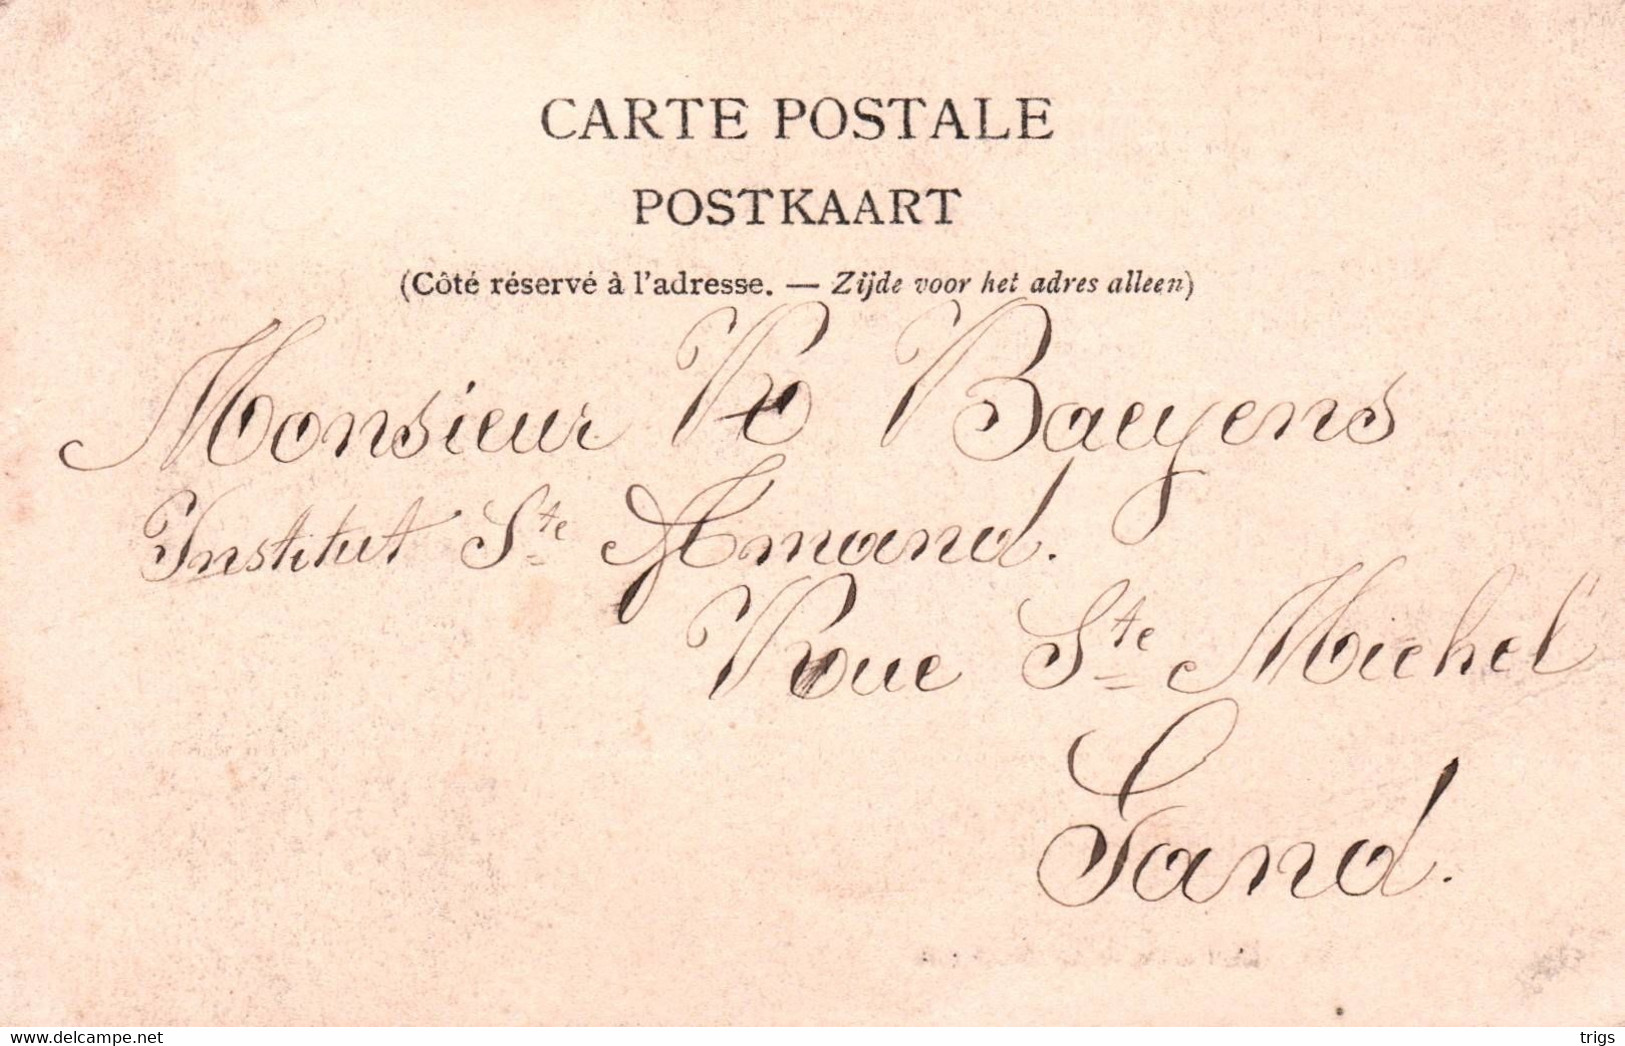 CARTE POSTALE
POSTKAART
(Côté réservé à l'adresse. — Zijde voor het adres alleen)
Monsieur Baeyens
Institut Ste Amand.
Rue Ste Michel
Gand.
delcampe.net
trigs